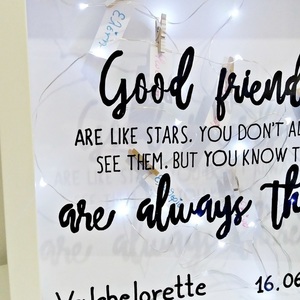 Good friend
ARE LIKE STARS. YOU DON'T A
SEE THEM. BUT YOU KNOW T
are always th
16.06